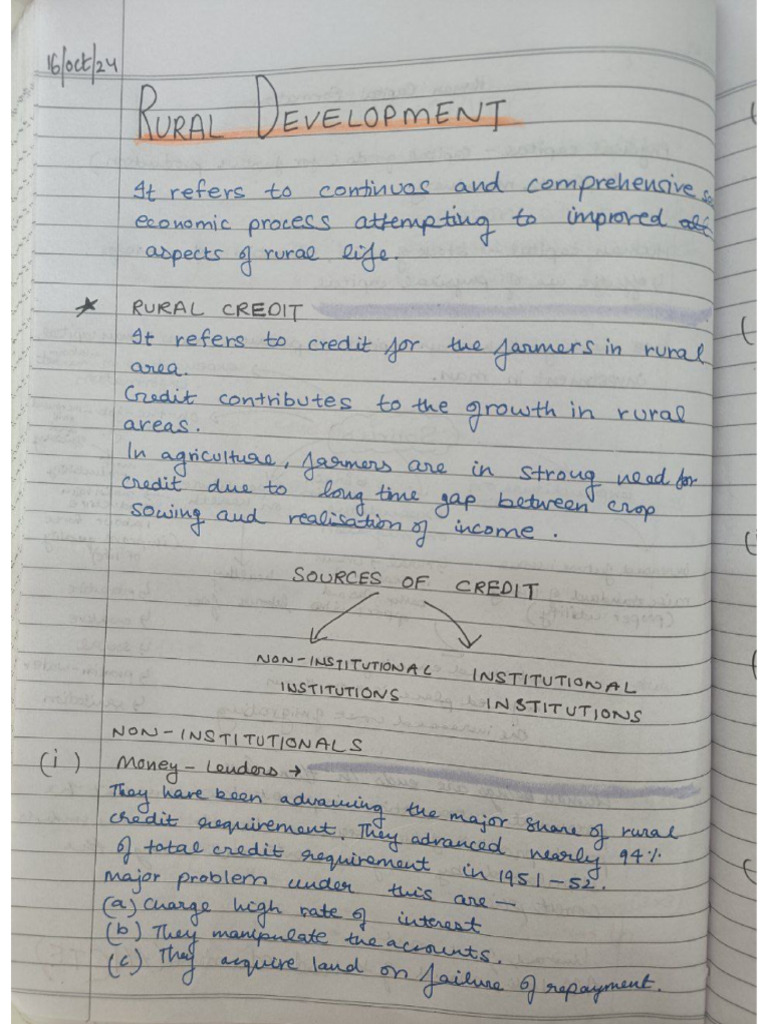 16/oct/24
RURAL DEVELOPMENT
It refers to continuos and comprehensive
economic process attempting to improved
aspects of rural life.
* RURAL CREDIT
It refers to credit for the farmers in rural
area.
Credit contributes to the growth in rural
areas.
In agriculture, farmers are in strong need for
credit due to long time gap between crop
sowing and realisation of income.
SOURCES OF CREDIT
NON-INSTITUTIONAL INSTITUTIONAL
INSTITUTIONS INSTITUTIONS
NON-INSTITUTIONALS
(i) Money-lenders →
They have been advancing the major share of rural
credit requirement. They advanced nearly 94%
of total credit requirement in 1951-52.
Major problem under this are —
(a) Charge high rate of interest
(b) They manipulate the accounts.
(c) They acquire land on failure of repayment.